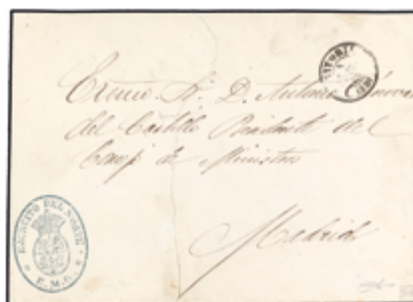 Excmo. Sr. D. Antonio Cánovas
del Castillo Presidente del
Consj. de Ministros
Madrid
EJERCITO DEL NORTE
E. M. G.